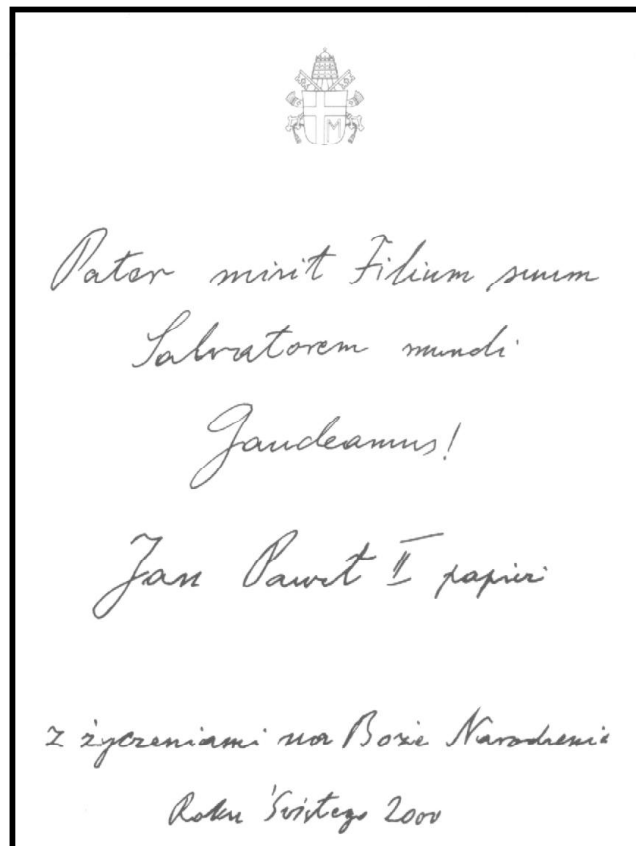 Pater misit Filium suum
Salvatorem mundi
Gaudeamus!
Jan Paweł II papież
z życzeniami na Boże Narodzenie
Roku Świętego 2000